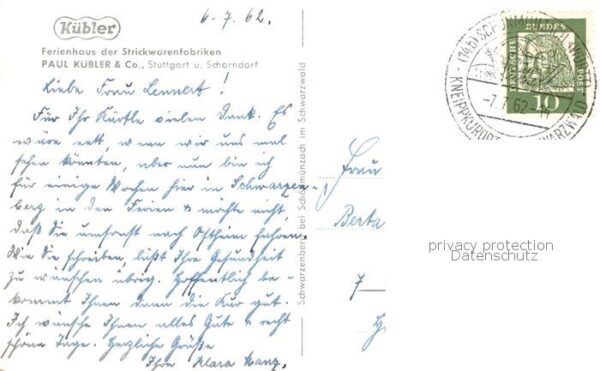 6.7.62.
Kübler
Ferienhaus der Strickwarenfabriken
PAUL KÜBLER & Co., Stuttgart u. Schorndorf
Liebe Frau Lennert!
Für Ihr Kärtle vielen Dank. Es
wäre nett, wenn wir uns mal
sehen könnten, aber nun bin ich
für einige Wochen hier in Schwarzen-
berg in den Ferien & möchte nicht,
daß Sie umsonst nach Ostheim fahren.
Wie Sie schreiben, läßt Ihre Gesundheit
zu wünschen übrig. Hoffentlich be-
kommt Ihnen dann die Kur gut.
Ich wünsche Ihnen alles Gute & recht
schöne Tage. Herzliche Grüße
Ihre Klara Manz.
Schwarzenberg bei Schönmünzach im Schwarzwald
Frau
Berta
7
DEUTSCHE BUNDESPOST
10
(14b) SCHÖNMÜNZACH
-7.7.62
KNEIPPKURORT SCHWARZWALD
privacy protection
Datenschutz